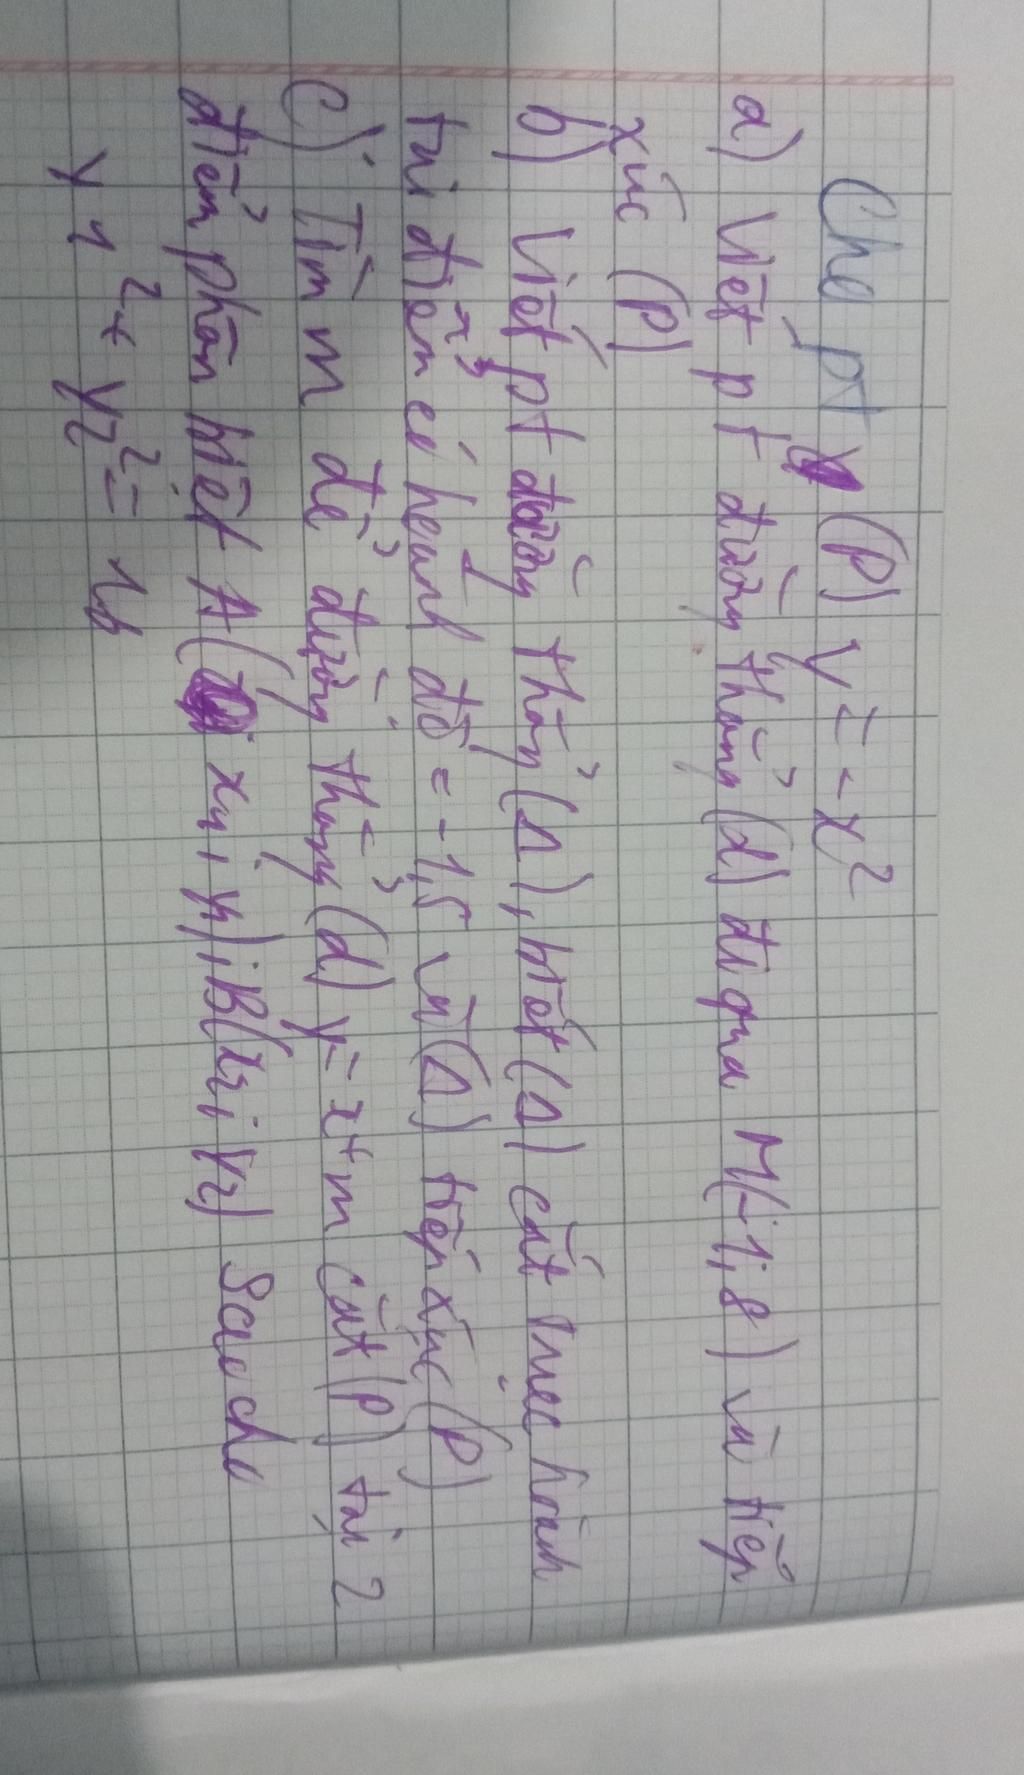 Cho pt (P) y = -x²
a) Viết pt đường thẳng (d) đi qua M(-1; 8) và tiếp
xúc (P)
b) Viết pt đường thẳng (Δ), biết (Δ) cắt trục hoành
tại điểm có hoành độ = -1,5 và (Δ) tiếp xúc (P)
c) Tìm m để đường thẳng (d) y = x + m cắt (P) tại 2
điểm phân biệt A(x₁; y₁); B(x₂; y₂) sao cho
y₁² + y₂² =